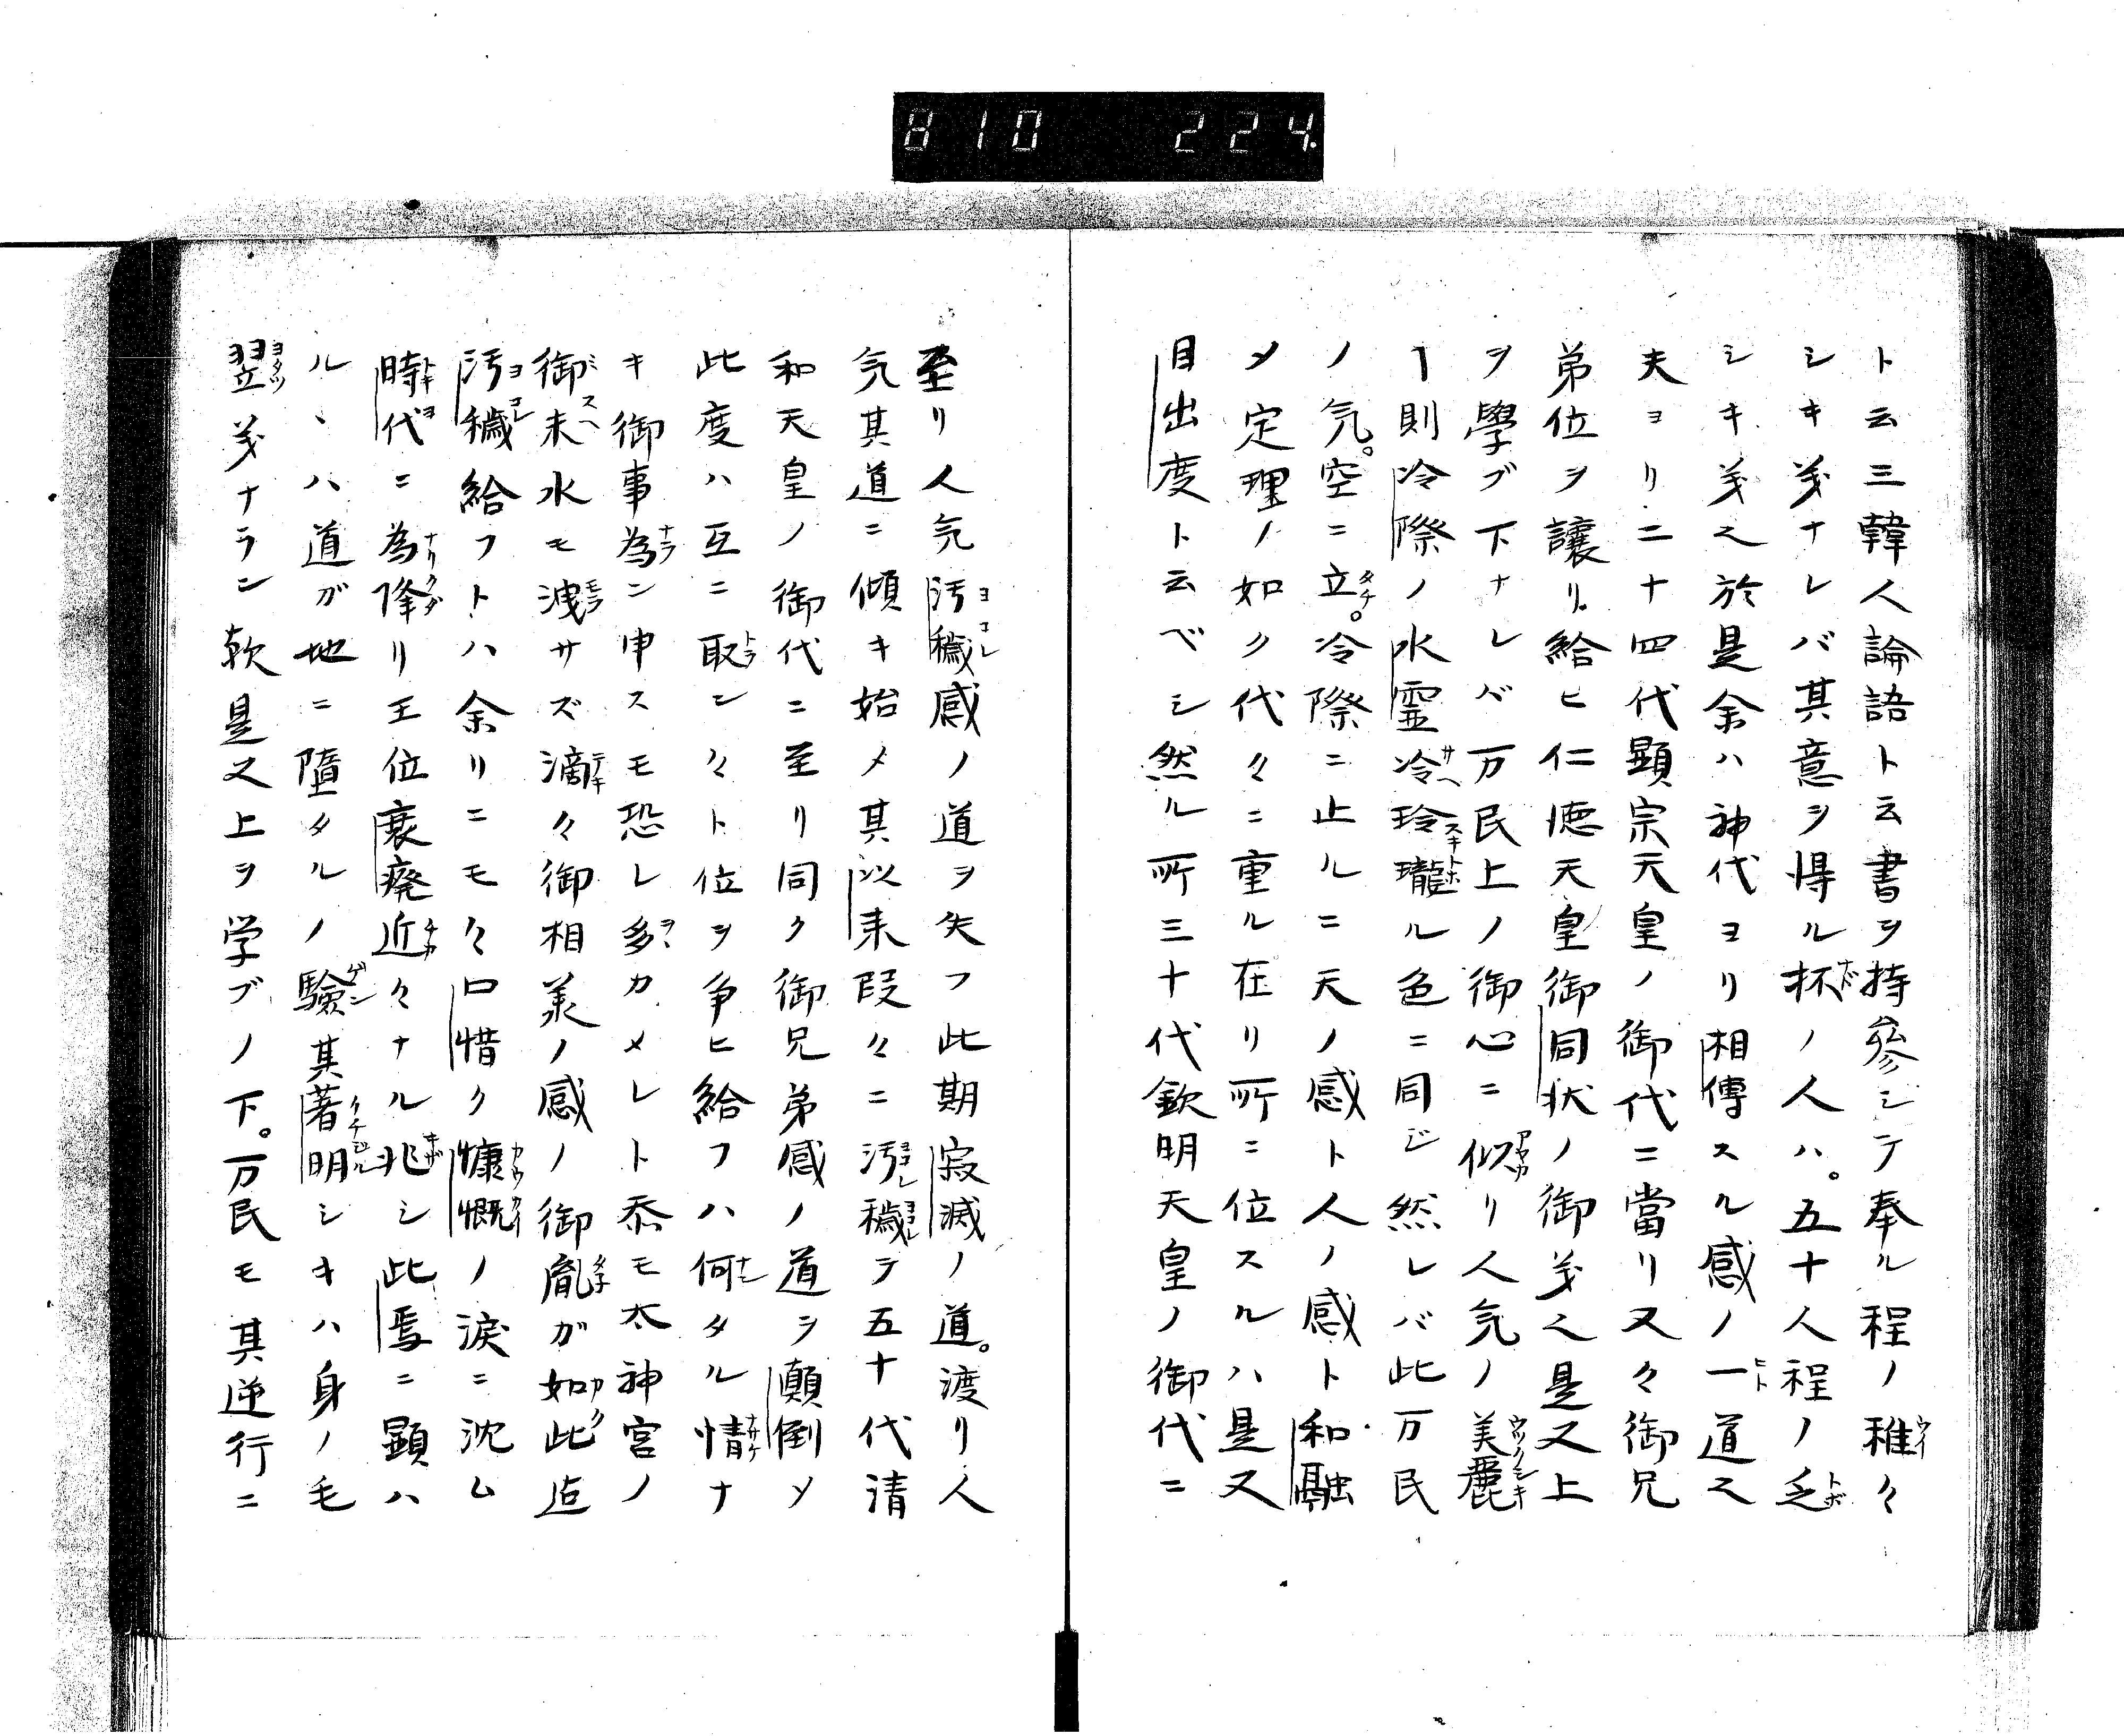 810 224.
ト云三韓人論語ト云書ヲ持參シテ奉ル程ノ稚々
シキ義ナレバ其意ヲ得ル抔ノ人ハ。五十人程ノ乏
シキ義ス於是余ハ神代ヨリ相傳スル感ノ一道ス
夫ヨリ二十四代顯宗天皇ノ御代ニ當リ又々御兄
弟位ヲ讓リ給ヒ仁徳天皇御同状ノ御義ス是又上
ヲ學ブ下ナレバ万民上ノ御心ニ似リ人気ノ美麗
ー則冷際ノ水霊冷玲瓏ル色ニ同ジ然レバ此万民
ノ気。空ニ立。冷際ニ止ルニ天ノ感ト人ノ感ト和融
メ定理ノ如ク代々ニ重ル在リ所ニ位スルハ是又
目出度ト云ベシ然ル所三十代欽明天皇ノ御代ニ
至リ人気汚穢感ノ道ヲ失フ此期寂滅ノ道。渡リ人
気其道ニ傾キ始メ其以来段々ニ汚穢テ五十代清
和天皇ノ御代ニ至リ同ク御兄弟感ノ道ヲ顛倒メ
此度ハ互ニ取ン々ト位ヲ争ヒ給フハ何タル情ナ
キ御事為ン申スモ恐レ多カメレト忝モ太神宮ノ
御末水モ洩サズ滴々御相羕ノ感ノ御胤ガ如此迄
汚穢給フトハ余リニモ々口惜ク慷慨ノ涙ニ沈ム
時代ニ為降リ王位衰廃近々ナル兆シ此焉ニ顕ハ
ルヽハ道ガ地ニ墮タルノ驗其著明シキハ身ノ毛
翌義ナラン歟是又上ヲ学ブノ下。万民モ其逆行ニ